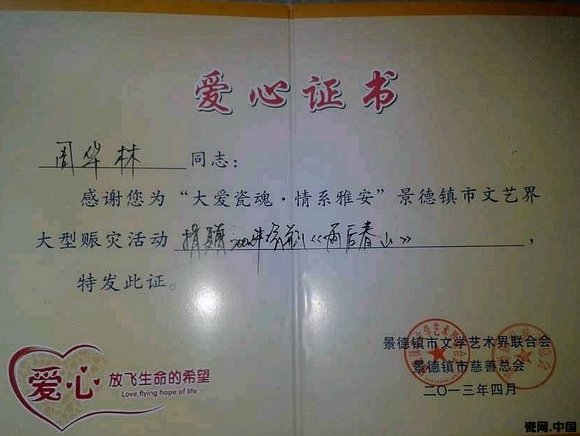 爱心证书
周华林 同志：
感谢您为“大爱瓷魂·情系雅安”景德镇市文艺界
大型赈灾活动 捐赠 《雨后春山》，
特发此证。
景德镇市文学艺术界联合会
景德镇市慈善总会
二〇一三年四月
爱心 放飞生命的希望
Love,flying hope of life
瓷网.中国